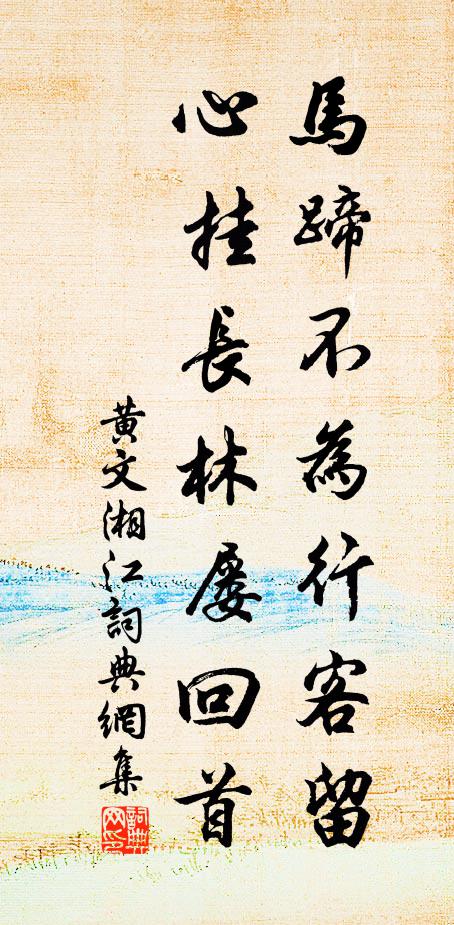 馬蹄不為行客留
心挂長林屡回首
黃文湘江詞典網集
詞典網印